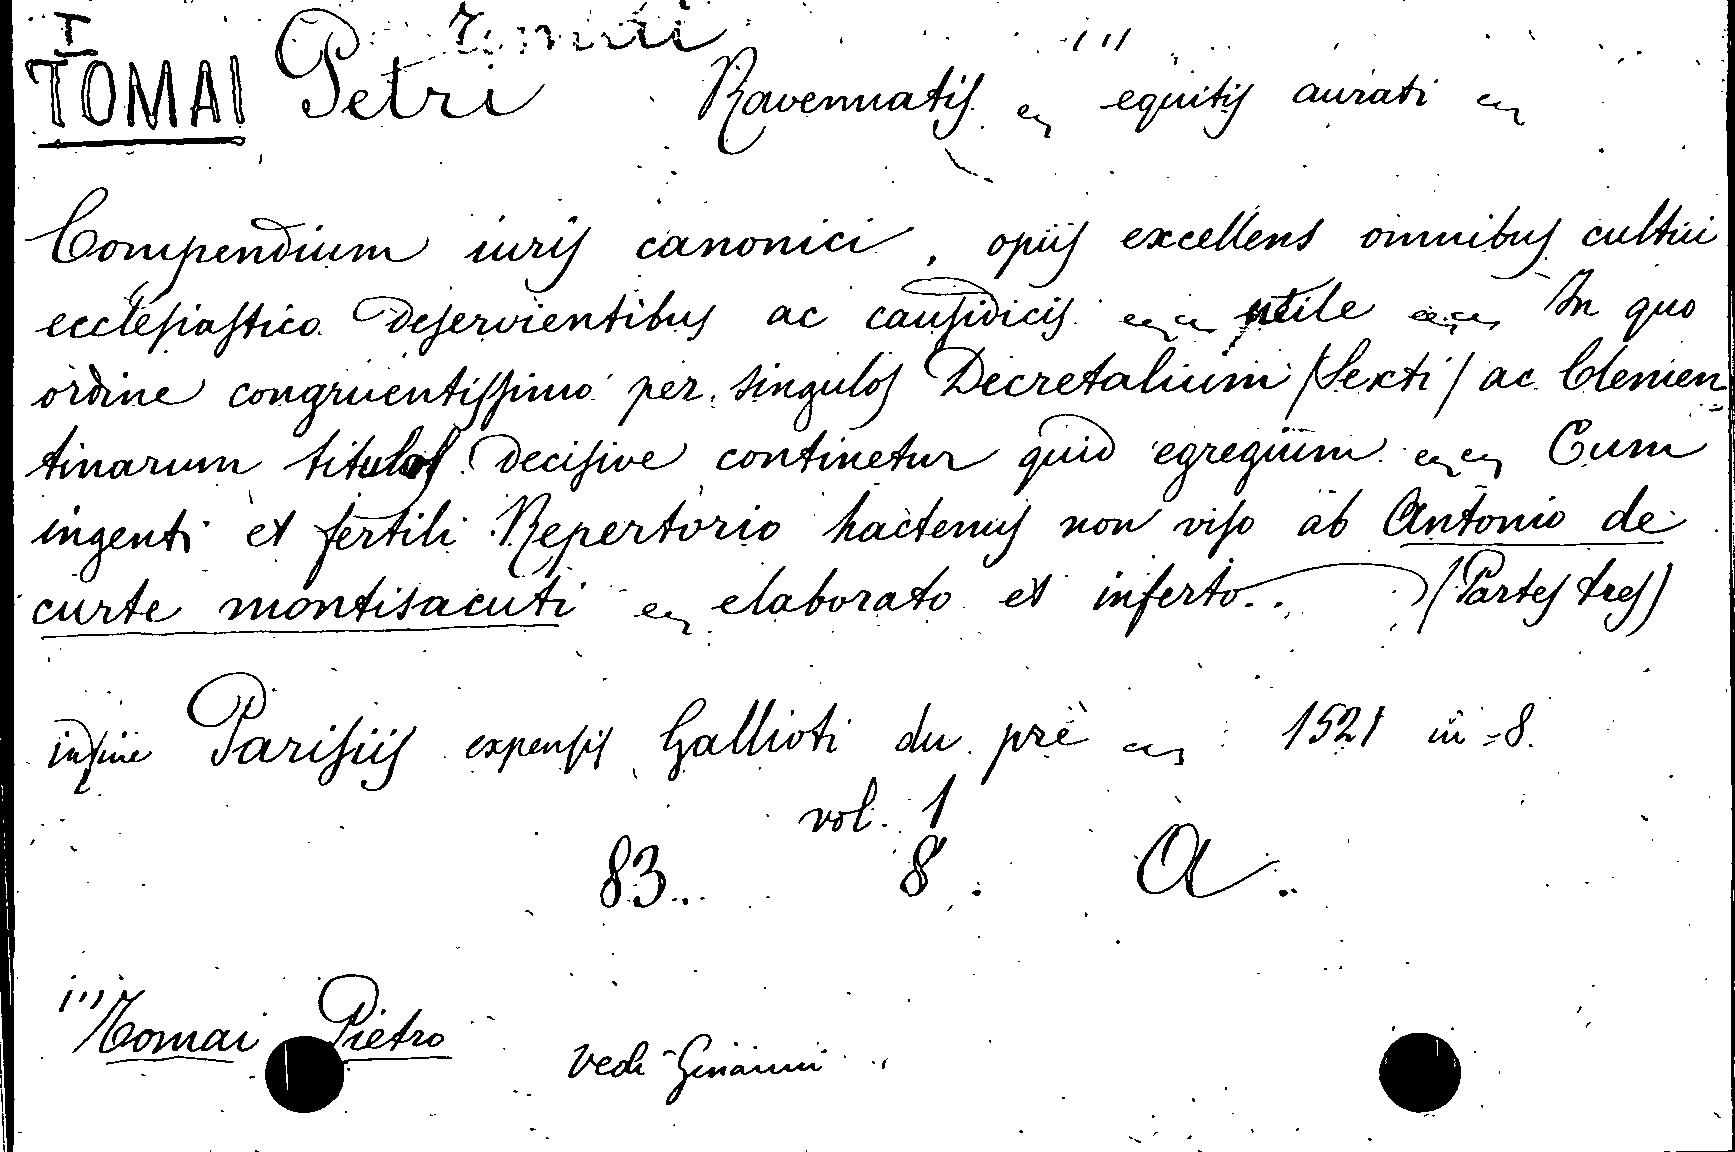 T Tomai
TOMAI Petri Ravennatis equitis aurati
Compendium iuris canonici, opus excellens omnibus cultui
ecclesiastico deservientibus ac causidicis utile In quo
ordine congruentissimo per singulos Decretalium (Sexti) ac Clemen=
tinarum titulos decisive continetur quid egregium Cum
ingenti et fertili Repertorio hactenus non viso ab Antonio de
curte montisacuti elaborato et inserto.. (Partes tres)
infine Parisiis expensis Gallioti du pré 1521 in=8.
vol. 1
83.. 8. A.
Tomai Pietro vedi Ginanni